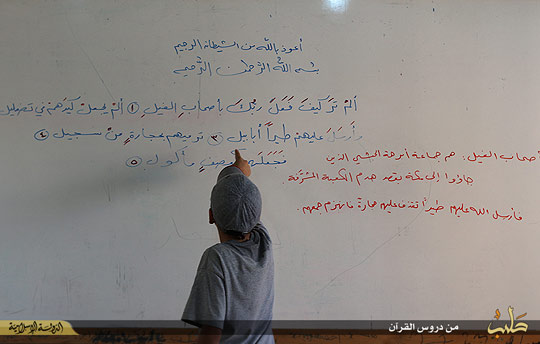 أعوذ بالله من الشيطان الرجيم
بسم الله الرَّحمن الرَّحيم
أَلَمْ تَرَ كَيْفَ فَعَلَ رَبُّكَ بِأَصحَابِ الفيلِ ① أَلَمْ يجعلْ كَيْدَهُمْ في تضليل
وَأَرسَلَ عليهمْ طيراً أبابيل ③ ترميهم بحجارةٍ مِنْ سجيل ④
فَجَعَلَهُمْ مأكول ⑤
أصحاب الفيل: هم جماعة أبرهة الحبشي الذين
جاؤوا إلى مكة بقصد هدم الكعبة المشرَّفة
فأرسل الله عليهم طيراً تقذف عليهم حجارةً فانهزم جمعهم.
الدولة الإسلامية
من دروس القرآن
حلب